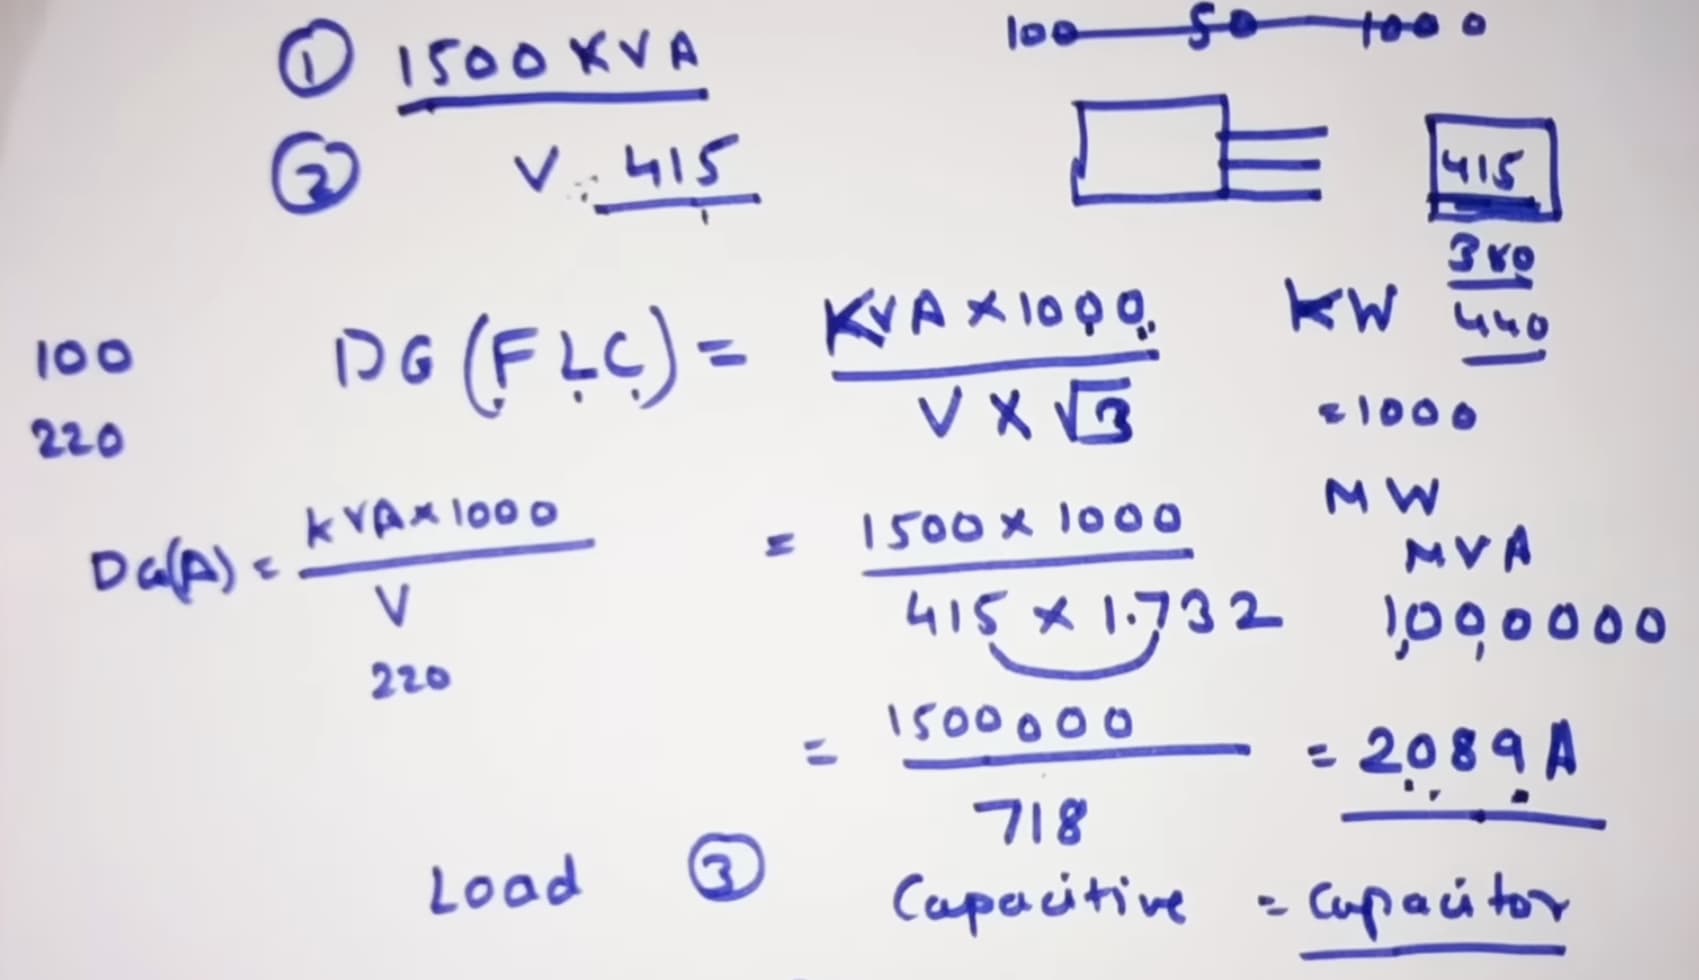 ① 1500 KVA
100 50 1000
② V : 415
415
380
440
100
220
DG (FLC) = KVA × 1000 / V × √3
KW
= 1000
MW
MVA
1,000,000
DG(A) = KVA × 1000 / V
220
= 1500 × 1000 / 415 × 1.732
= 1500000 / 718 = 2089 A
Load ③ Capacitive = Capacitor